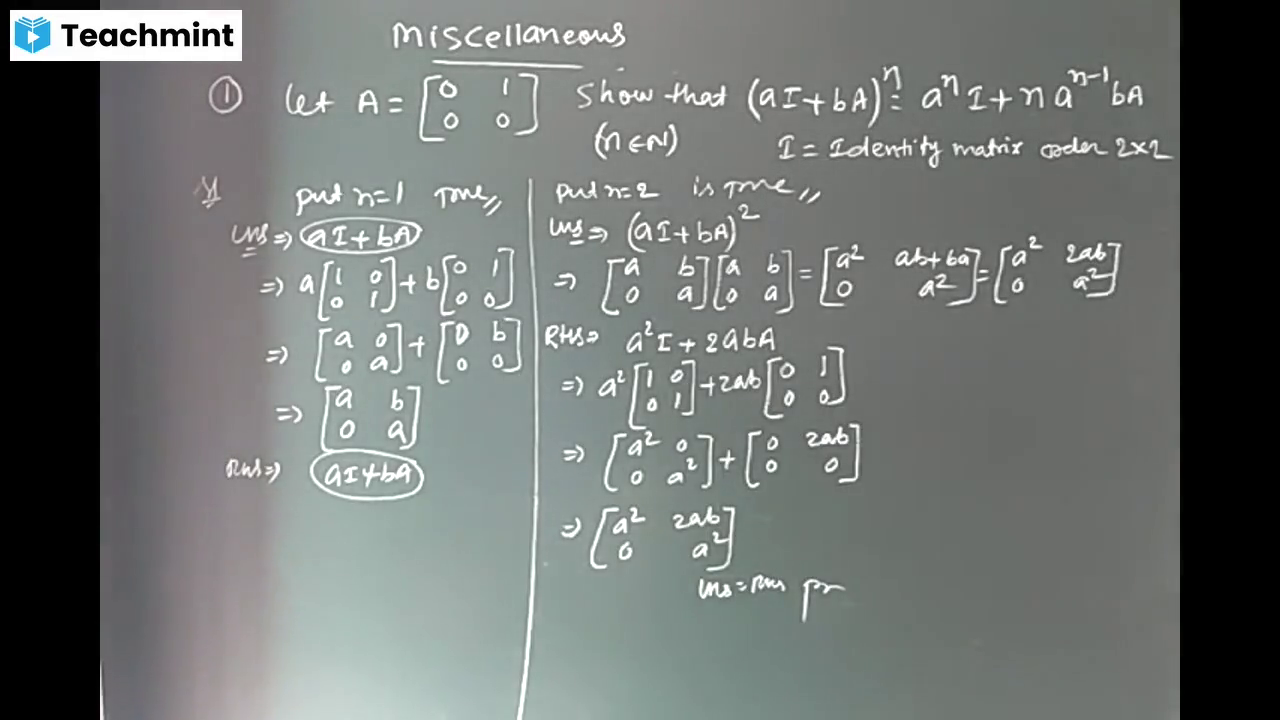 Teachmint
Miscellaneous
① Let A = [0 1; 0 0] Show that (aI + bA)^n = a^n I + n a^(n-1) bA
(n ∈ N) I = Identity matrix order 2×2
put n=1 True,,
LHS ⇒ aI + bA
⇒ a[1 0; 0 1] + b[0 1; 0 0]
⇒ [a 0; 0 a] + [0 b; 0 0]
⇒ [a b; 0 a]
RHS ⇒ aI + bA
put n=2 is True,,
LHS ⇒ (aI + bA)^2
⇒ [a b; 0 a][a b; 0 a] = [a² ab+ba; 0 a²] = [a² 2ab; 0 a²]
RHS ⇒ a²I + 2abA
⇒ a²[1 0; 0 1] + 2ab[0 1; 0 0]
⇒ [a² 0; 0 a²] + [0 2ab; 0 0]
⇒ [a² 2ab; 0 a²]
LHS = RHS pr